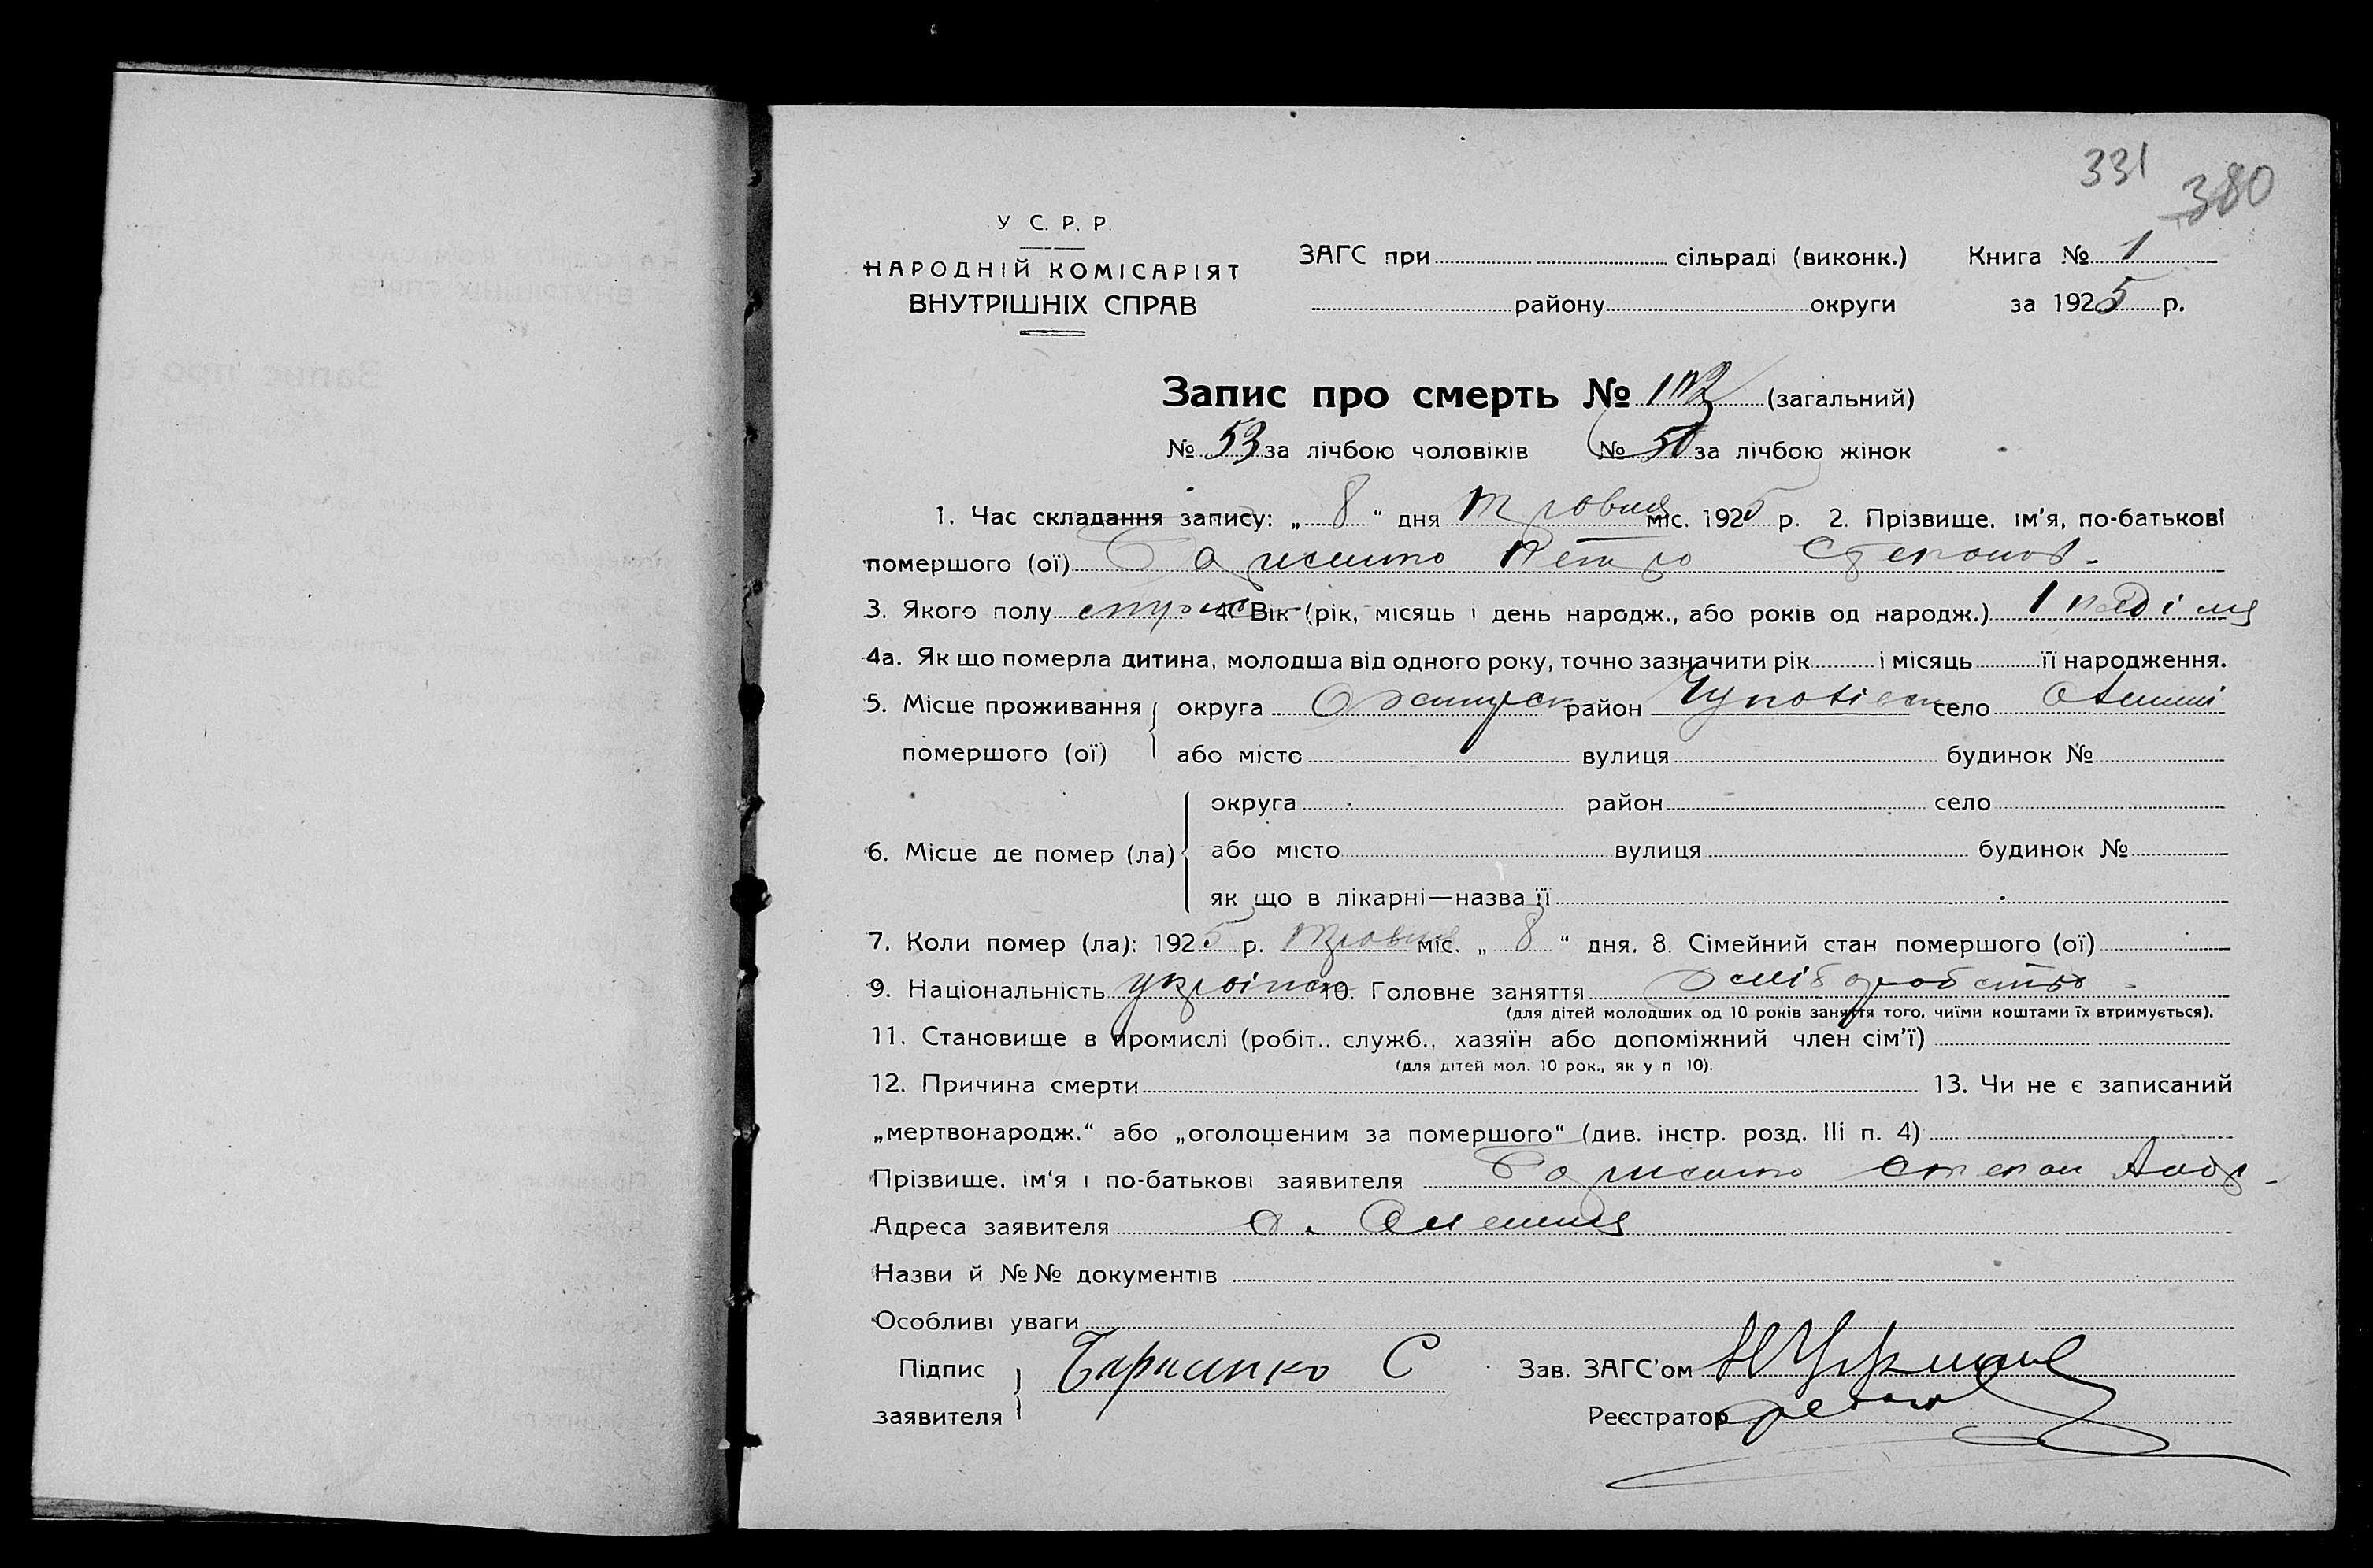 331
380
У С. Р. Р.
НАРОДНІЙ КОМІСАРІЯТ
ВНУТРІШНІХ СПРАВ
ЗАГС при сільраді (виконк.) Книга № 1
району округи за 1925 р.
Запис про смерть № (загальний)
№ 53 за лічбою чоловіків № 50 за лічбою жінок
1. Час складання запису: „ 8 “ дня Травня міс. 1925 р. 2. Прізвище, ім'я, по-батькові
помершого (ої) Петро Степанов.
3. Якого полу 4. Вік (рік, місяць і день народж., або років од народж.) 1 неділя
4а. Як що померла дитина, молодша від одного року, точно зазначити рік і місяць її народження.
5. Місце проживання округа район село
помершого (ої) або місто вулиця будинок №
округа район село
6. Місце де помер (ла) або місто вулиця будинок №
як що в лікарні—назва її
7. Коли помер (ла): 1925 р. травня міс. „ 8 “ дня. 8. Сімейний стан помершого (ої)
9. Національність 10. Головне заняття хліборобство
(для дітей молодших од 10 років заняття того, чиїми коштами їх втримується).
11. Становище в промислі (робіт., служб., хазяїн або допоміжний член сім'ї)
(для дітей мол. 10 рок., як у п 10).
12. Причина смерти 13. Чи не є записаний
„мертвонародж.“ або „оголошеним за помершого“ (див. інстр. розд. III п. 4)
Прізвище, ім'я і по-батькові заявителя Степан Андр.
Адреса заявителя с.
Назви й №№ документів
Особливі уваги
Підпис С Зав. ЗАГС'ом
заявителя Реєстратор